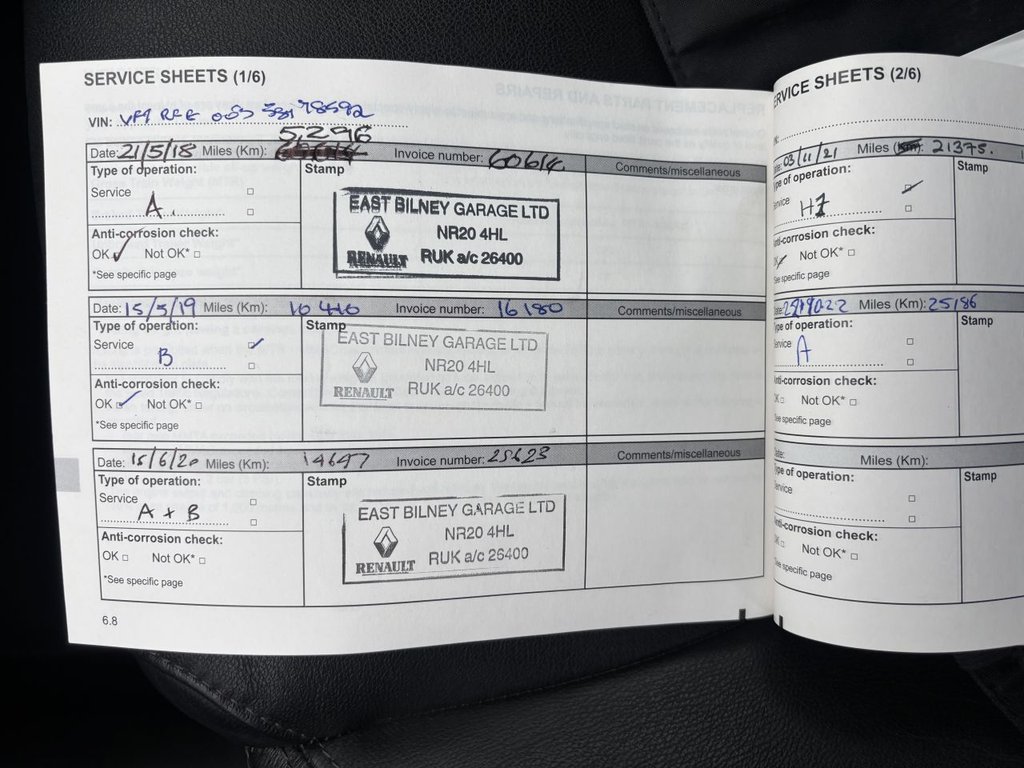 SERVICE SHEETS (1/6)
VIN:
5,296
Date: 21/5/18 Miles (Km): Invoice number: 60614
Type of operation: Stamp Comments/miscellaneous
Service
A
Anti-corrosion check:
OK ✓ Not OK* □
*See specific page
EAST BILNEY GARAGE LTD
NR20 4HL
RENAULT RUK a/c 26400
Date: 15/5/19 Miles (Km): 10 446 Invoice number: 16180
Type of operation: Stamp Comments/miscellaneous
Service
B
Anti-corrosion check:
OK Not OK* □
*See specific page
EAST BILNEY GARAGE LTD
NR20 4HL
RENAULT RUK a/c 26400
Date: 15/6/20 Miles (Km): 14647 Invoice number: 25623
Type of operation: Stamp Comments/miscellaneous
Service
A + B
Anti-corrosion check:
OK □ Not OK* □
*See specific page
EAST BILNEY GARAGE LTD
NR20 4HL
RENAULT RUK a/c 26400
6.8
ERVICE SHEETS (2/6)
03/11/21 Miles 21375.
ype of operation: Stamp
ervice
nti-corrosion check:
Not OK* □
ee specific page
Miles (Km): 25186
ype of operation: Stamp
ervice
A
nti-corrosion check:
Not OK* □
ee specific page
Miles (Km):
ype of operation: Stamp
ervice
nti-corrosion check:
Not OK* □
ee specific page